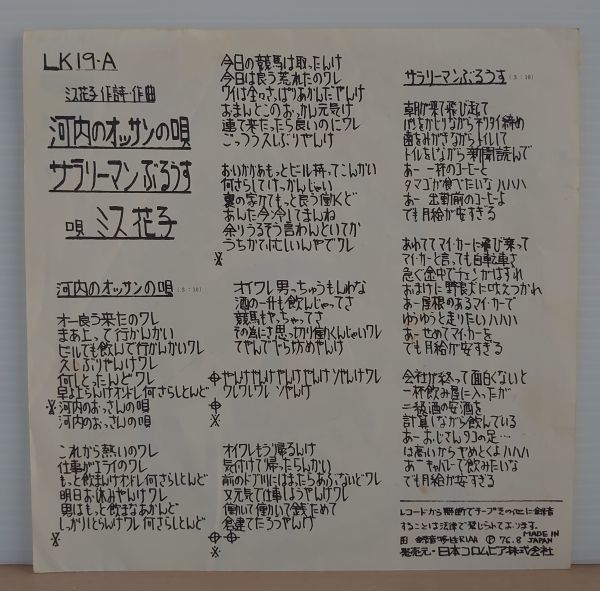 LK19-A
ミス花子 作詩・作曲
河内のオッサンの唄
サラリーマンぶるうす
唄 ミス花子
河内のオッサンの唄 (3:10)
オー良う来たのワレ
まあ上って行かんかい
ビールでも飲んで行かんかいワレ
久しぶりやんけワレ
何しとったんどワレ
早よ上らんけオンドレ何さらしとんど
河内のおっさんの唄
河内のおっさんの唄
これから熱いのワレ
仕事がエライのワレ
もっと飲まんけオンドレ何さらしとんど
明日お休みやんけワレ
男はもっと飲まなあかんど
しっかりしとらんけワレ何さらしとんど
今日の競馬は取ったんけ
今日は良う荒れたのワレ
ワイは全々さっぱりあかんだやんけ
おまんとこのおっかん元気け
連て来たったら良いのにワレ
ごっつう久しぶりやんけ
おいかかあもっとビール持ってこんかい
何さらしてけつかんじゃい
裏の家かてもっと良う働くど
あんた今冷してまんねん
余りうるそう言わんといてか
うちかて忙しいんやでワレ
オイワレ男っちゅうもんわな
酒の一升も飲んじゃってさ
競馬もやっちゃってさ
その為にさ思っ切り働くんじゃいワレ
てやんでぃら坊めやんけ
やんけやんけやんけやんけ そやんけワレ
ワレワレワレ ソやんけ
オイワレもう帰るんけ
気付けて帰ったらんかい
前のドブ川にはまったらあぶないどワレ
又元気で仕事しようやんけワレ
働いて働いて銭ためて
倉建てたろうやんけ
サラリーマンぶるうす (3:10)
朝が来て飛び起て
パンをかじりながらネクタイ締め
歯をみがきながらトイレして
トイレをしながら新聞読んで
あー 一杯のコーヒーと
タマゴが食べたいなハハハ
あー 出勤前のコーヒーよ
でも月給が安すぎる
あわててマイ・カーに飛び乗って
マイカーと言っても自転車さ
急ぐ途中でチェンがはずれ
おまけに野良犬に吠えつかれ
あー屋根のあるマイ・カーで
ゆうゆうと走りたいハハハ
あー せめてマイカーを
でも月給が安すぎる
会社が終って面白くないと
一杯飲み屋に入ったが
二級酒の安酒を
計算しながら飲んでいる
あー おじさんタコの足…
は高いからやめとくよハハハ
あー キャバレーで飲みたいな
でも月給が安すぎる
レコードから無断でテープその他に録音
することは法律で禁じられております。
録音特性RIAA Ⓟ76.8 MADE IN JAPAN
発売元・日本コロムビア株式会社